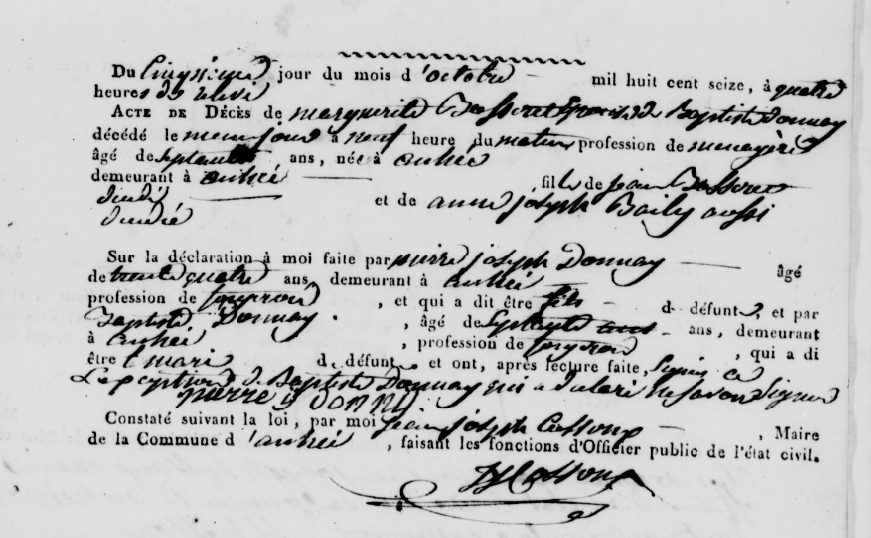 Du Cinquieme jour du mois d'octobre mil huit cent seize, à quatre
heures de relevé
ACTE DE DÉCÈS de marguerite Bassenet Epouse de Baptiste Donnay
décédé le meme jour à neuf heure du matin profession de menagère
âgé de septante ans, née à anhée
demeurant à anhée , fille de jean
dudit et de anne joseph Baily aussi
Sur la déclaration à moi faite par pierre joseph Donnay âgé
de trente quatre ans, demeurant à anhée
profession de , et qui a dit être fils d défunte, et par
Baptiste Donnay , âgé de septante ans, demeurant
à anhée , profession de , qui a di
être mari d défunte et ont, après lecture faite, Signés ce
Lexception de Baptiste Donnay qui a dalaré ne savoir Signer
pierre j DONNAY
Constaté suivant la loi, par moi jean joseph , Maire
de la Commune d'anhée , faisant les fonctions d'Officier public de l'état civil.